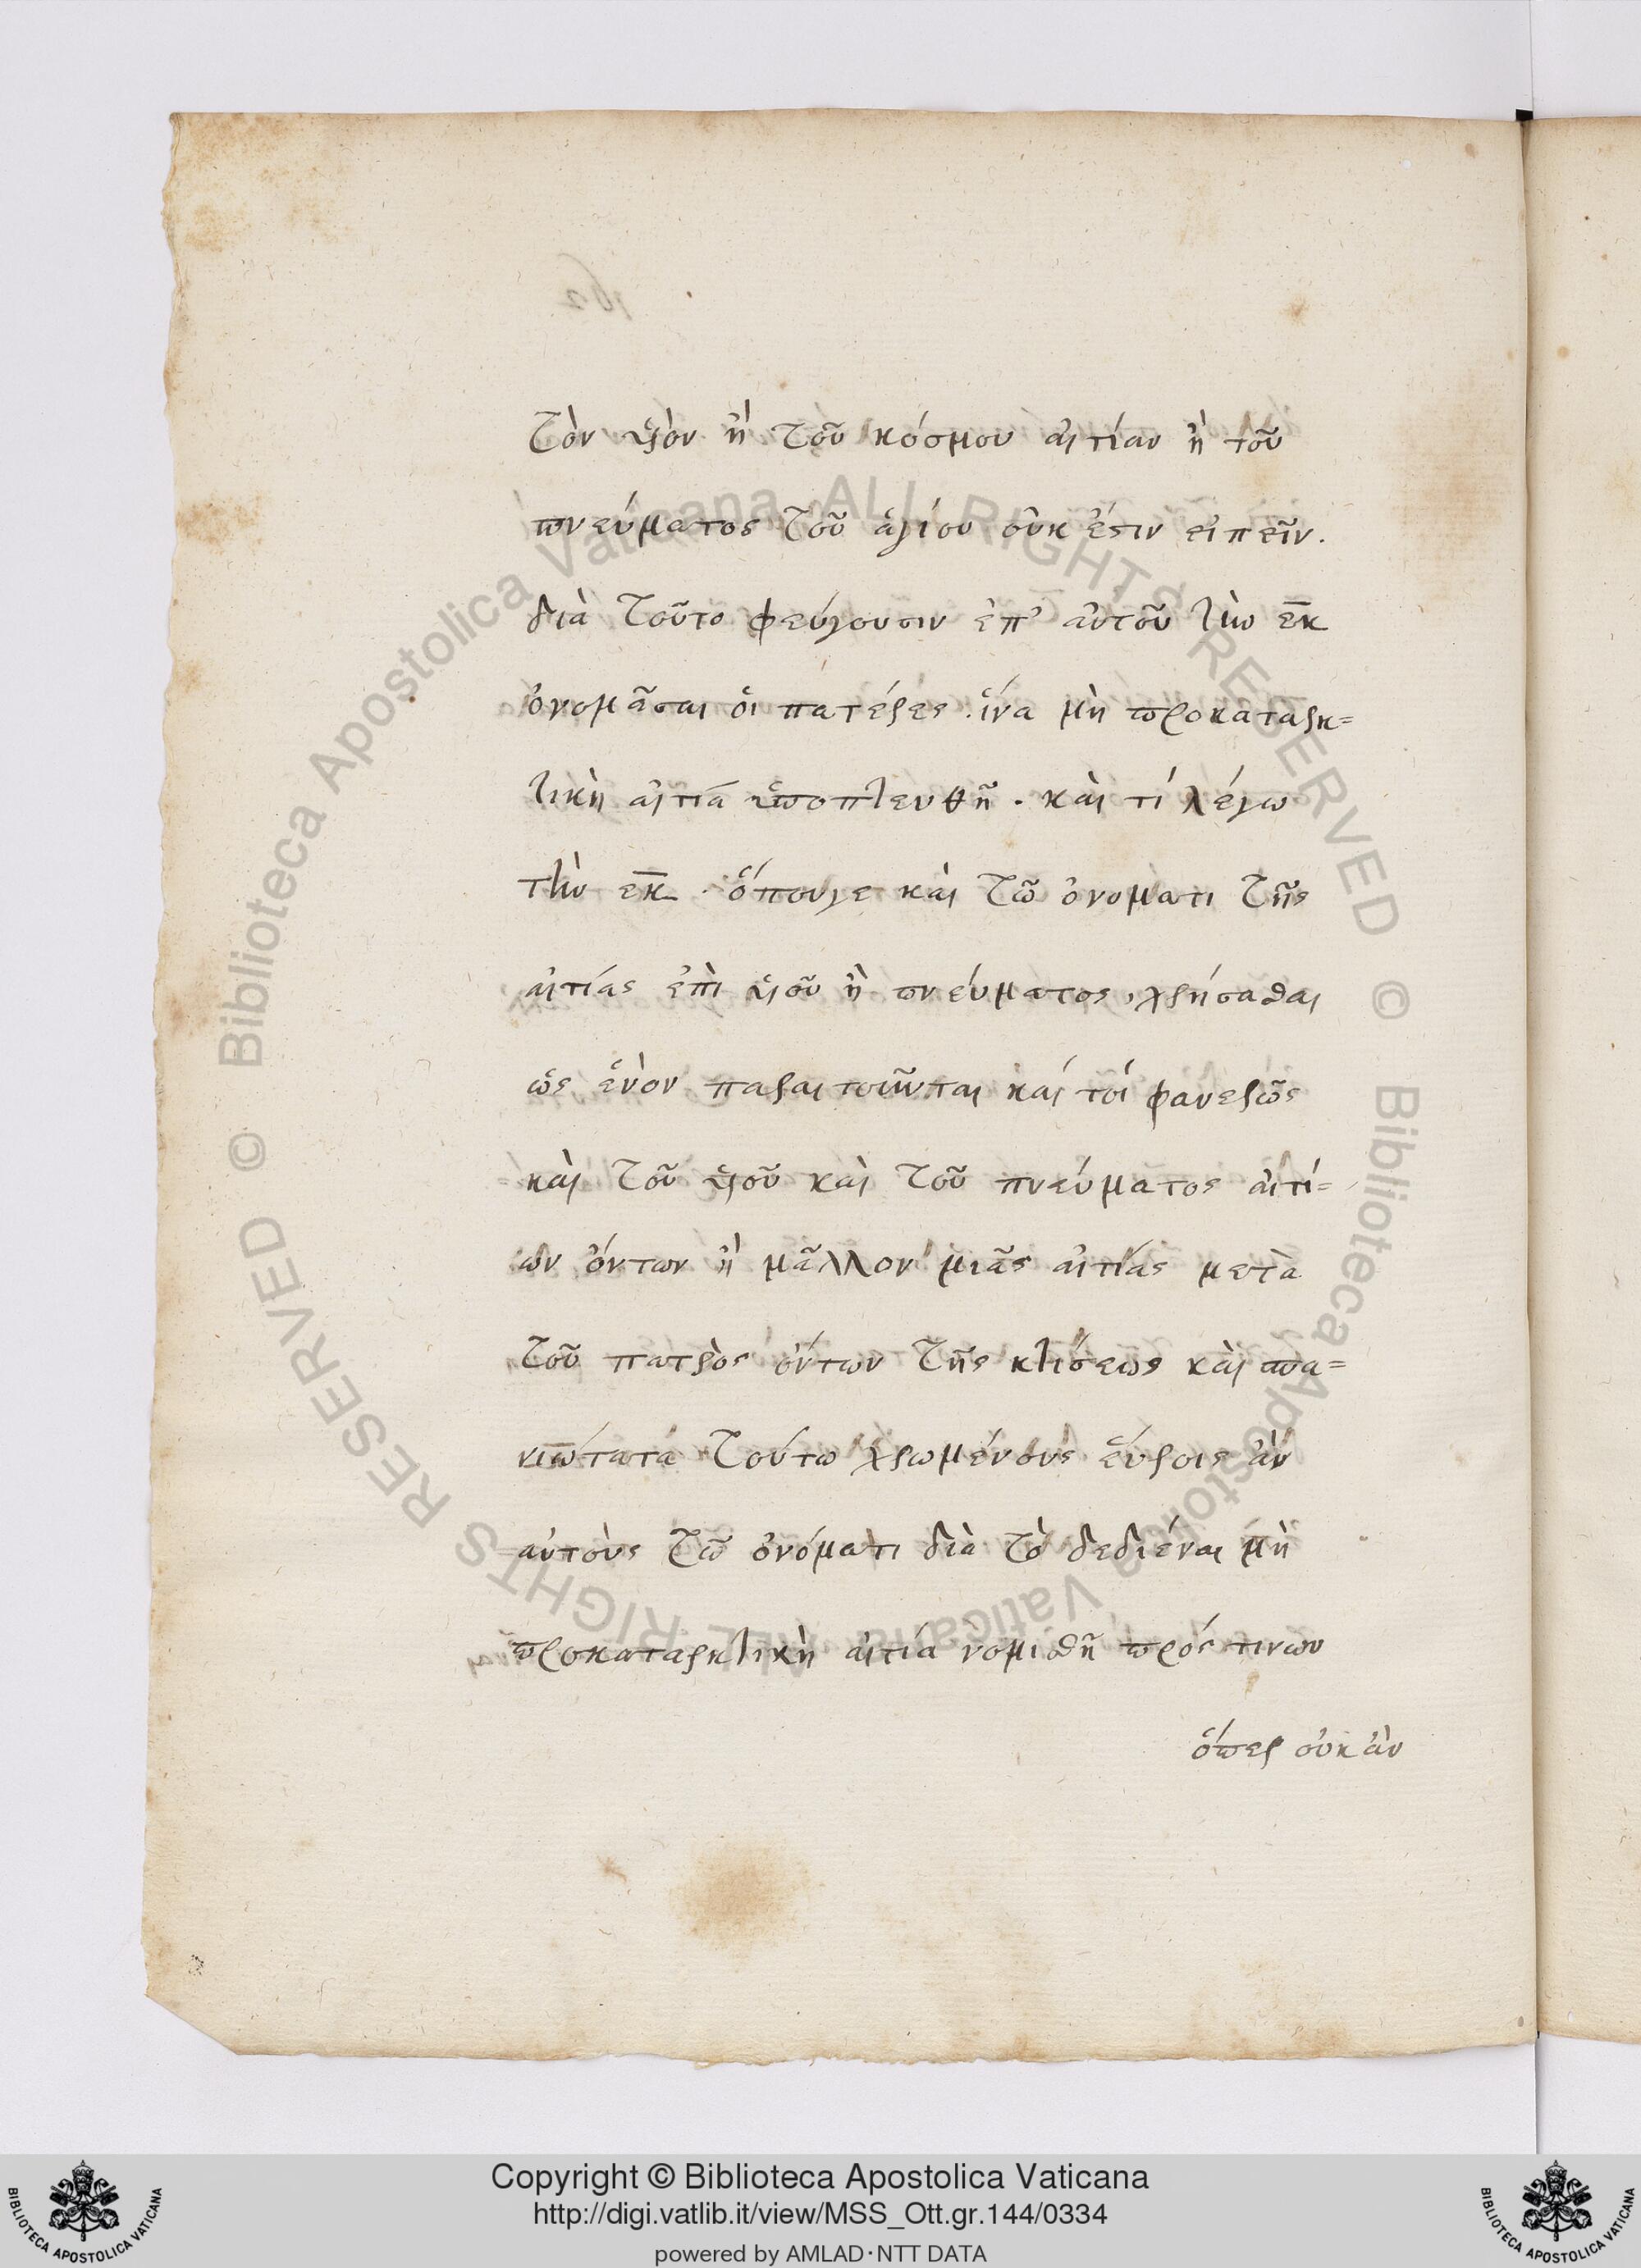 τὸν υἱὸν ἢ τοῦ κόσμου αἰτίαν ἢ τοῦ
πνεύματος τοῦ ἁγίου οὐκ ἔστιν εἰπεῖν.
διὰ τοῦτο φεύγουσιν ἐπ' αὐτοῦ τὴν ἐκ
ὀνομᾶσαι οἱ πατέρες. ἵνα μὴ προκαταρκ=
τικὴ αἰτία ὑποπτευθῆ. καὶ τί λέγω
τὴν ἐκ. ὅπουγε καὶ τῶ ὀνοματι τῆς
αἰτίας ἐπὶ υἱοῦ ἢ πνεύματος, χρήσασθαι
ὡς ἐνὸν παραιτοῦνται καί τοί φανερῶς
καὶ τοῦ υἱοῦ καὶ τοῦ πνεύματος αἰτί=
ων ὄντων ἢ μᾶλλον μιᾶς αἰτίας μετὰ
τοῦ πατρὸς ὄντων τῆς κτίσεως καὶ σπα=
νιώτατα τούτω χρωμένους εὕροις ἂν
αὐτοὺς τῶ ὀνόματι διὰ τὸ δεδιέναι μὴ
προκαταρκτικὴ αἰτία νομισθῆ πρός τινων
ὅπερ οὐκ ἂν
Copyright © Biblioteca Apostolica Vaticana
http://digi.vatlib.it/view/MSS_Ott.gr.144/0334
powered by AMLAD·NTT DATA
BIBLIOTECA APOSTOLICA VATICANA
BIBLIOTECA APOSTOLICA VATICANA
© Biblioteca Apostolica Vaticana ALL RIGHTS RESERVED © Biblioteca Apostolica Vaticana ALL RIGHTS RESERVED